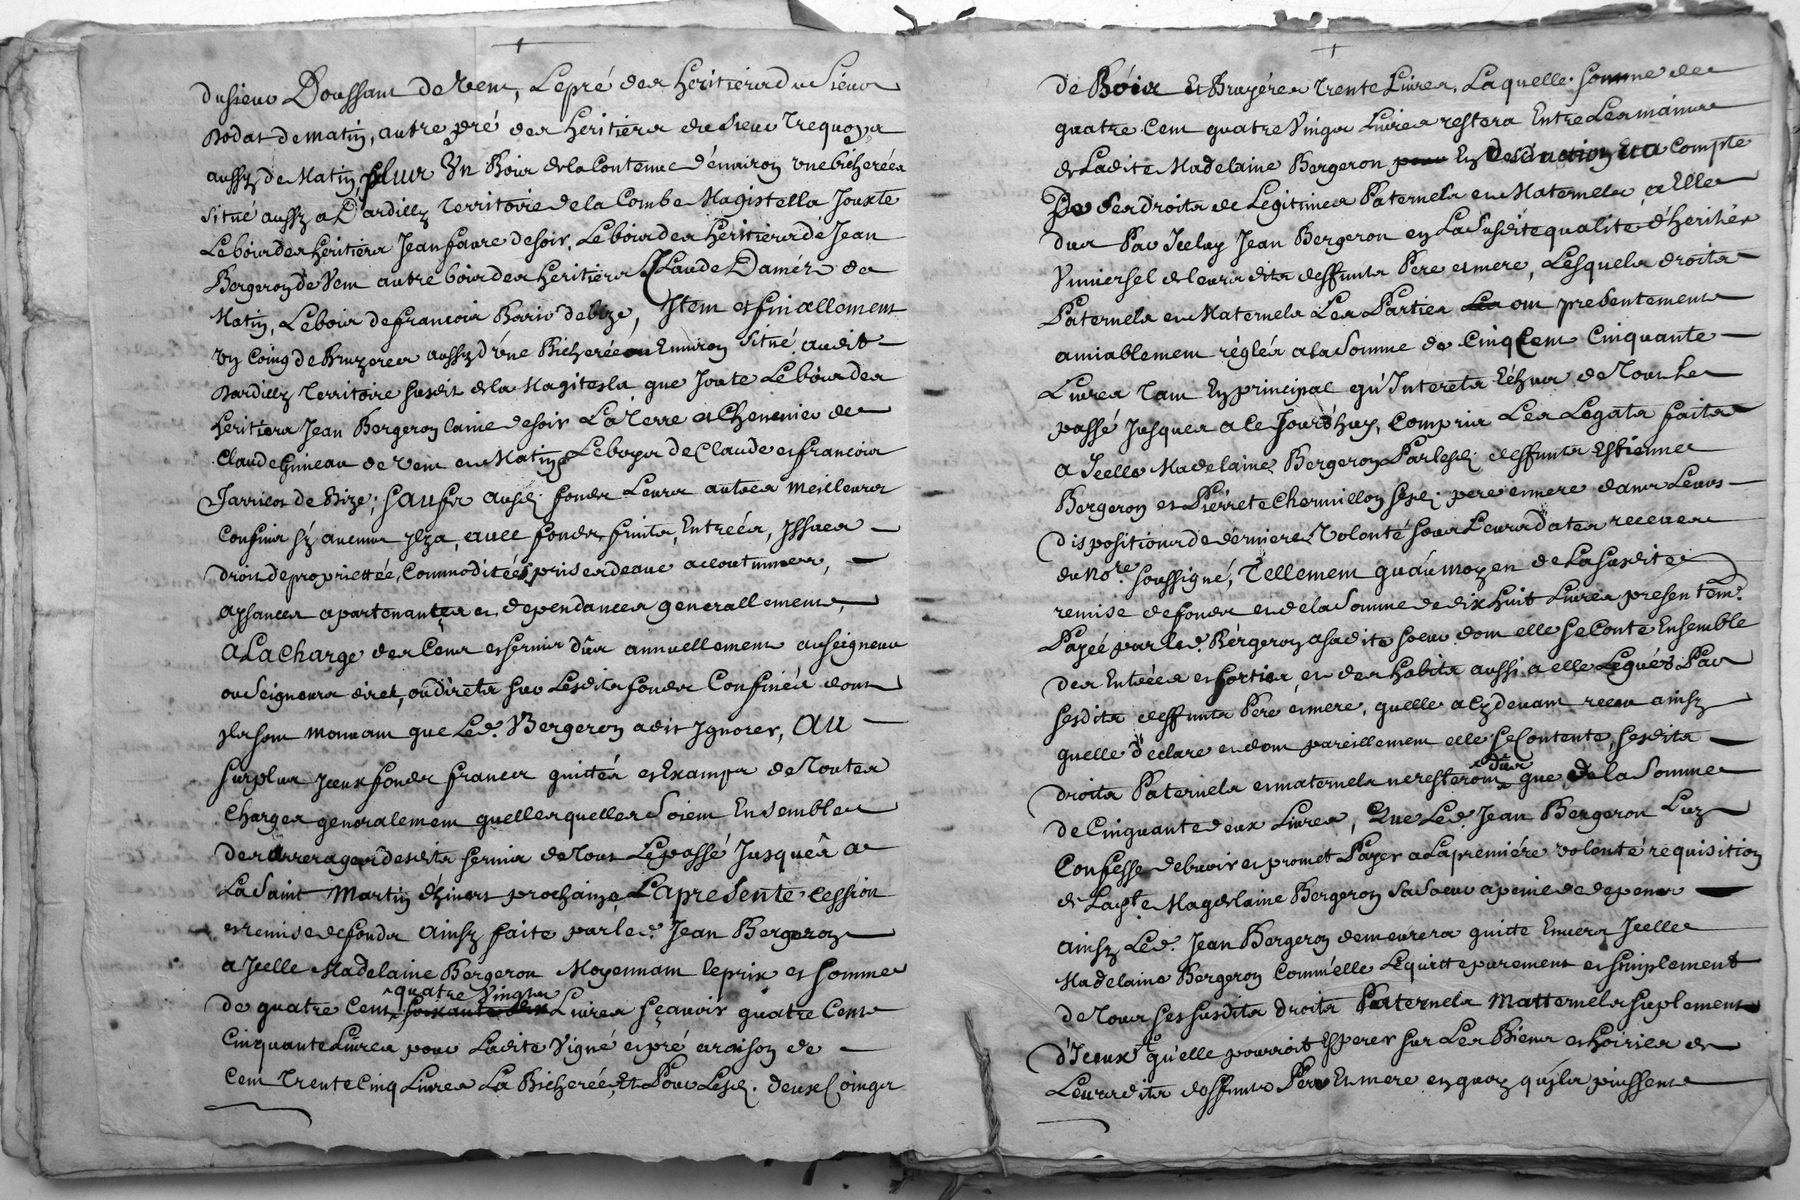 du sieur Doussant de vent, Le pré des heritiers du Sieur
Dodat de matin, autre pré des heritiers du Sieur Trequoy,
aussy de Matin, plus Un Bois de la Contenue d'environ une bicherée
situé aussy a Dardilly Territoire de la Combe Magistella Jouxte
Le bois des heritiers Jean favre de soir, Le bois des heritiers de Jean
Bergeron de Vent autre bois des heritiers Claude Daméz de
Matin, Le bois de francois Boriv de bize, Item et finallement
Un Coing de Bruyeres aussy d'une Bicherée ou Environ Situé audit
Dardilly Territoire susdit de la Magitesla que Joute Le bois des
heritiers Jean Bergeron laine de soir La Terre et Chenevier de
Claude Guneau de vent et Matin Le boys de Claude et francois
Jarricot de Bize; Sauf si ausd. fonds Leurs autres meilleurs
Confins sy aucuns y a, avec fonds fruits, Entrées, Issues
droit de propriettée, Commoditées prises d'eau accoutumées,
aysances apartenantes et dependances generallement,
A La Charge des Cens et servis dûs annuellement au seigneur
ou Seigneurs diret, ou directs sur Lesdits fonds Confinés dont
ils sont mouvant que Led. Bergeron a dit Ignorer, Au
surplus Iceux fonds francs quittés et Exampt de Toutes
Charges generalement quelles quelles Soient Ensemble
des arrerages desdits servis de Tous Le passé Jusqu'â a
La Saint Martin d'hivert prochain, La presente Cession
et remise de fonds ainsy faite par led. Jean Bergeron
a Icelle Madelaine Bergeron Moyennant le prix et somme
quatre Vingts
de quatre Cent soixante dix Livres sçavoir quatre Cent
Cinquante Livres pour Ladite Vigne et pré a raison de
Cent Trente Cinq Livres La Bicherée, Et Pour Lesd. deux Coings
de Bois et Bruyéres Trente Livres, Laquelle somme de
quatre Cent quatre Vingt Livres restera Entre Les mains
de Ladite Madelaine Bergeron pour En deduction et a compte
De ses droits de Legitimes Paternels et Maternels, a Elle
dus Par Iceluy Jean Bergeron en La Susdite qualité d'heritier
Universel de leurs dits deffunts Pere et mere, Lesquels droits
Paternels et Maternels Les Parties Les ont presentement
amiablement réglés a la Somme de Cinq Cent Cinquante
Livres Tant En principal qu'Interets Echus de Tout Le
passé Jusques a Ce Jourd'huy, Compris Les Legats faits
a Icelle Madelaine Bergeron Par lesd. deffunts Estienne
Bergeron et Pierrete Chermillon sesd. pere et mere dans Leurs
dispositions de derniere Volonté sous Leurs dates receues
du Nore. soussigné, Tellement qu'au moyen de La Susdite
remise de fonds et de la Somme de dix huit Livres presentemt.
Payée par led. Bergeron a sa dite soeur dont elle se Conte Ensemble
des Entrées et sorties, et des habits aussi a elle Legués Par
sesdits deffunts Pere et mere, quelle a cy devant receu ainsy
quelle declare et dont pareillement elle se Contente, sesdits
dûs
droits Paternels et maternels ne resteront que de la Somme
de Cinquante deux Livres, Que Led. Jean Bergeron Luy
Confesse debvoir et promet Payer a La premiére volonté requisition
de Lad.te Magdelaine Bergeron sa soeur a peine de depens
ainsy Led. Jean Bergeron demeurera quitte Envers Icelle
Madelaine Bergeron Comm'elle Le quitte purement et simplement
de Tous ses susdits droits Paternels Matternels suplement
d'Iceux qu'elle pourroit Esperer sur Les Biens et hoiries de
Leurs dits deffunts Pere Et mere en quoy qu'ils puissent